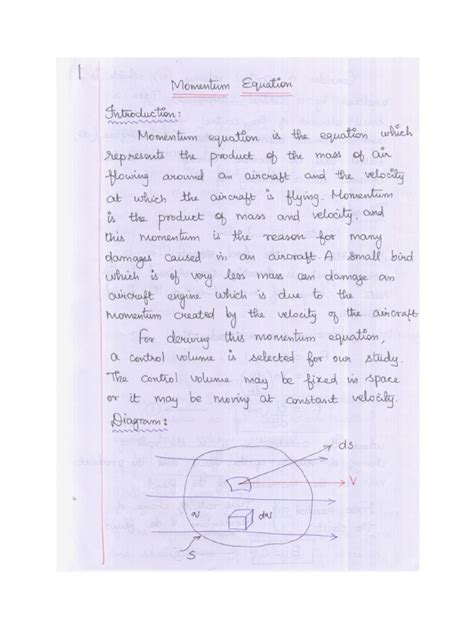 1
Momentum Equation
Introduction:
Momentum equation is the equation which
represents the product of the mass of air
flowing around an aircraft and the velocity
at which the aircraft is flying. Momentum
is the product of mass and velocity, and
this momentum is the reason for many
damages caused in an aircraft. A small bird
which is of very less mass can damage an
aircraft engine which is due to the
momentum created by the velocity of the aircraft
For deriving this momentum equation,
a control volume is selected for our study.
The control volume may be fixed in space
or it may be moving at constant velocity.
Diagram:
ds
V
v
dv
S